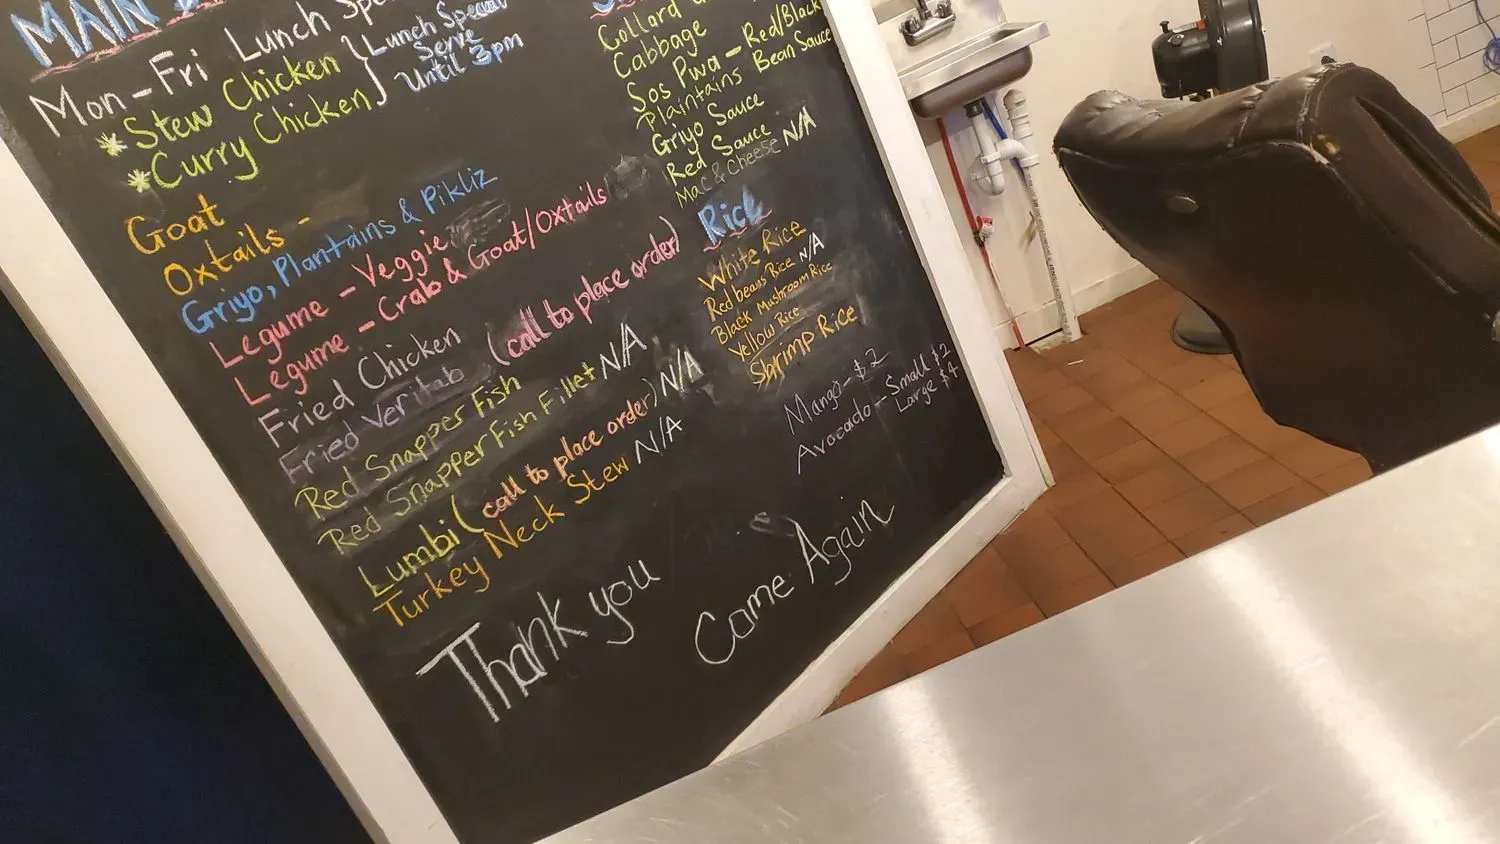 MAIN
Mon-Fri Lunch Spe
*Stew Chicken
*Curry Chicken
Lunch Special
Serve
Until 3pm
Goat
Oxtails -
Griyo, Plantains & Pikliz
Legume - Veggie
Legume - Crab & Goat/Oxtails
Fried Chicken
Fried Veritab (call to place order)
Red Snapper Fish
Red Snapper Fish Fillet N/A
Lumbi (call to place order) N/A
Turkey Neck Stew N/A
Collard
Cabbage
Sos Pwa - Red/Black
Bean Sauce
Plaintains
Griyo Sauce
Red Sauce
Mac & Cheese N/A
Rice
White Rice
Red beans Rice N/A
Black Mushroom Rice
Yellow Rice
Shrimp Rice
Mango - $2
Avocado - Small $2
Large $4
Thank you
Come Again